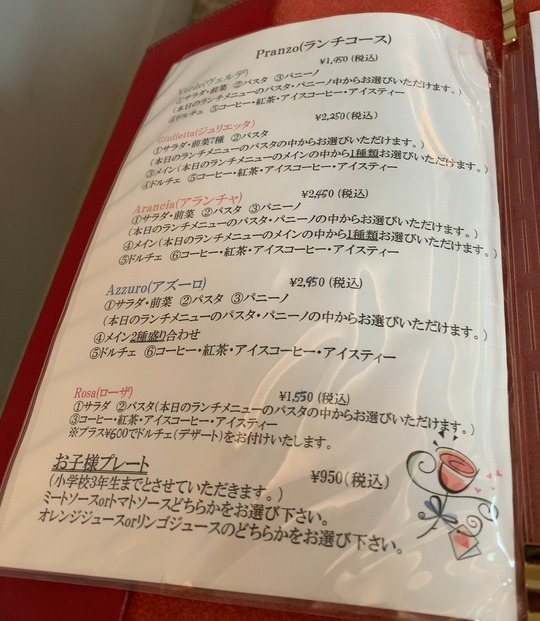 Pranzo(ランチコース)
Verde(ヴェルデ) ¥1,950 (税込)
①サラダ・前菜 ②パスタ ③パニーノ
(本日のランチメニューのパスタ・パニーノ中からお選びいただけます。)
④ドルチェ ⑤コーヒー・紅茶・アイスコーヒー・アイスティー
Giulietta(ジュリエッタ) ¥2,250(税込)
①サラダ・前菜7種 ②パスタ
(本日のランチメニューのパスタの中からお選びいただけます。)
③メイン(本日のランチメニューのメインの中から1種類お選びいただけます。)
④ドルチェ ⑤コーヒー・紅茶・アイスコーヒー・アイスティー
Arancia(アランチャ) ¥2,450(税込)
①サラダ・前菜 ②パスタ ③パニーノ
(本日のランチメニューのパスタ・パニーノの中からお選びいただけます。)
④メイン(本日のランチメニューのメインの中から1種類お選びいただけます。)
⑤ドルチェ ⑥コーヒー・紅茶・アイスコーヒー・アイスティー
Azzuro(アズーロ) ¥2,950(税込)
①サラダ・前菜 ②パスタ ③パニーノ
(本日のランチメニューのパスタ・パニーノの中からお選びいただけます。)
④メイン2種盛り合わせ
⑤ドルチェ ⑥コーヒー・紅茶・アイスコーヒー・アイスティー
Rosa(ローザ) ¥1,550(税込)
①サラダ ②パスタ(本日のランチメニューのパスタの中からお選びいただけます。)
③コーヒー・紅茶・アイスコーヒー・アイスティー
※プラス¥600でドルチェ(デザート)をお付けいたします。
お子様プレート ¥950(税込)
(小学校3年生までとさせていただきます。)
ミートソースorトマトソースどちらかをお選び下さい。
オレンジジュースorリンゴジュースのどちらかをお選び下さい。